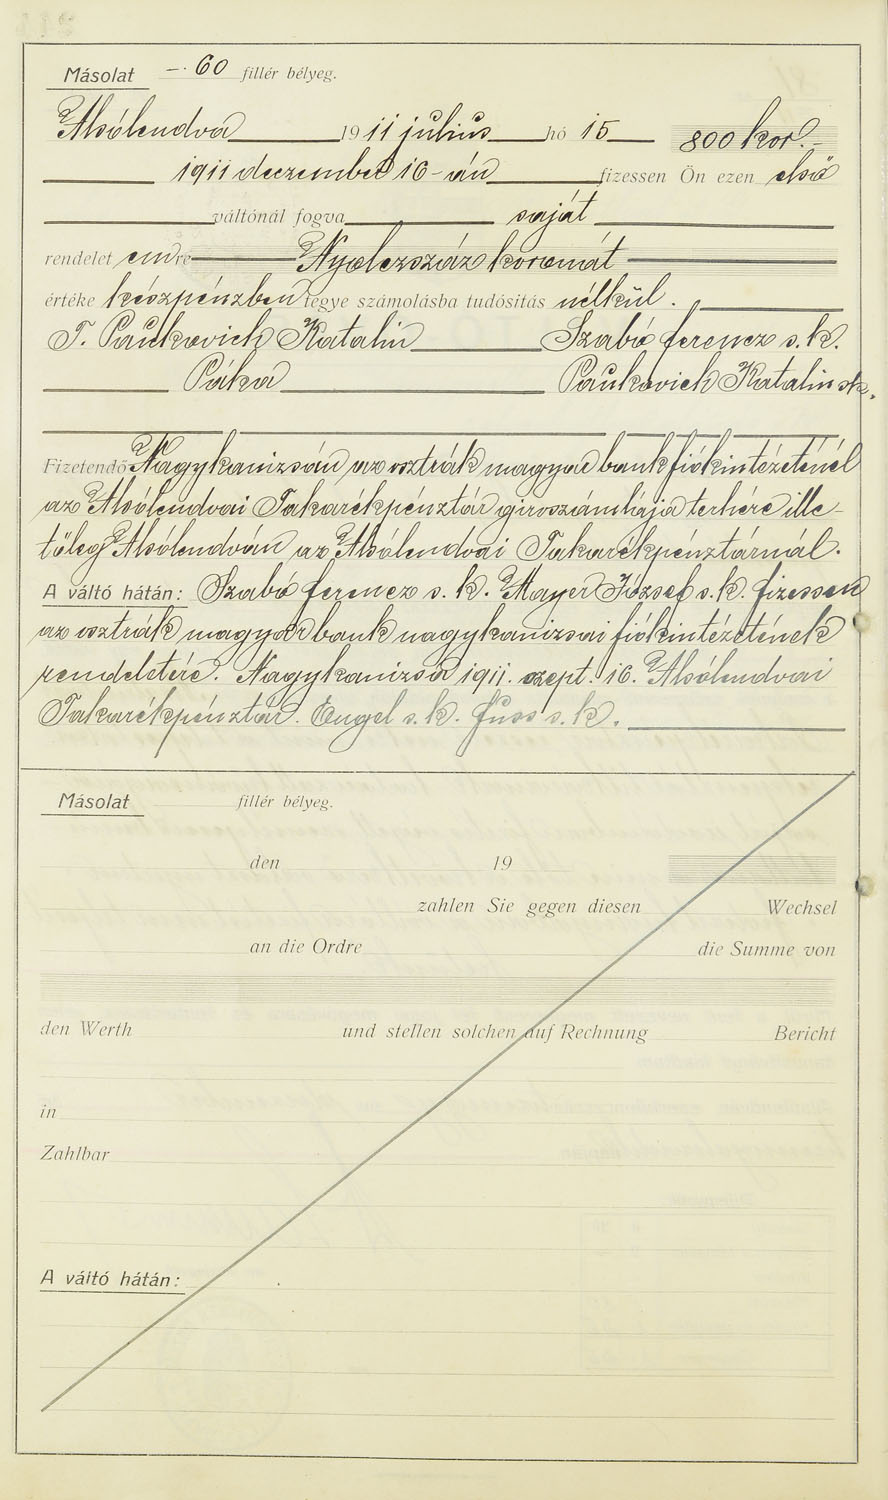 Másolat —.60 fillér bélyeg.
Alsólendva 1911 július hó 15 800 kor.-
1911 deczember 16-án fizessen Ön ezen első
váltónál fogva saját
rendelet emre Nyolczszáz koronát
értéke készpénzben tegye számolásba tudósitás nélkül.
T. Paukovich Katalin Szabó Ferencz s.k.
Páka Paukovich Katalin sk.
Fizetendő Nagykanizsán az osztrák magyar bank fiókintézeténél
az Alsólendvai Takarékpénztár giroszámlája terhére ille-
tőleg Alsólendván az Alsólendvai Takarékpénztárnál.
A váltó hátán: Szabó Ferencz s.k. Mayer József s.k. fizessen
az osztrák magyar bank nagykanizsai fiókintézetének
rendeletére. Nagykanizsa 1911. szept. 16. Alsólendvai
Takarékpénztár. Engel s.k. Fuss s.k.
Másolat fillér bélyeg.
den 19
zahlen Sie gegen diesen Wechsel
an die Ordre die Summe von
den Werth und stellen solchen auf Rechnung Bericht
in
Zahlbar
A váltó hátán: